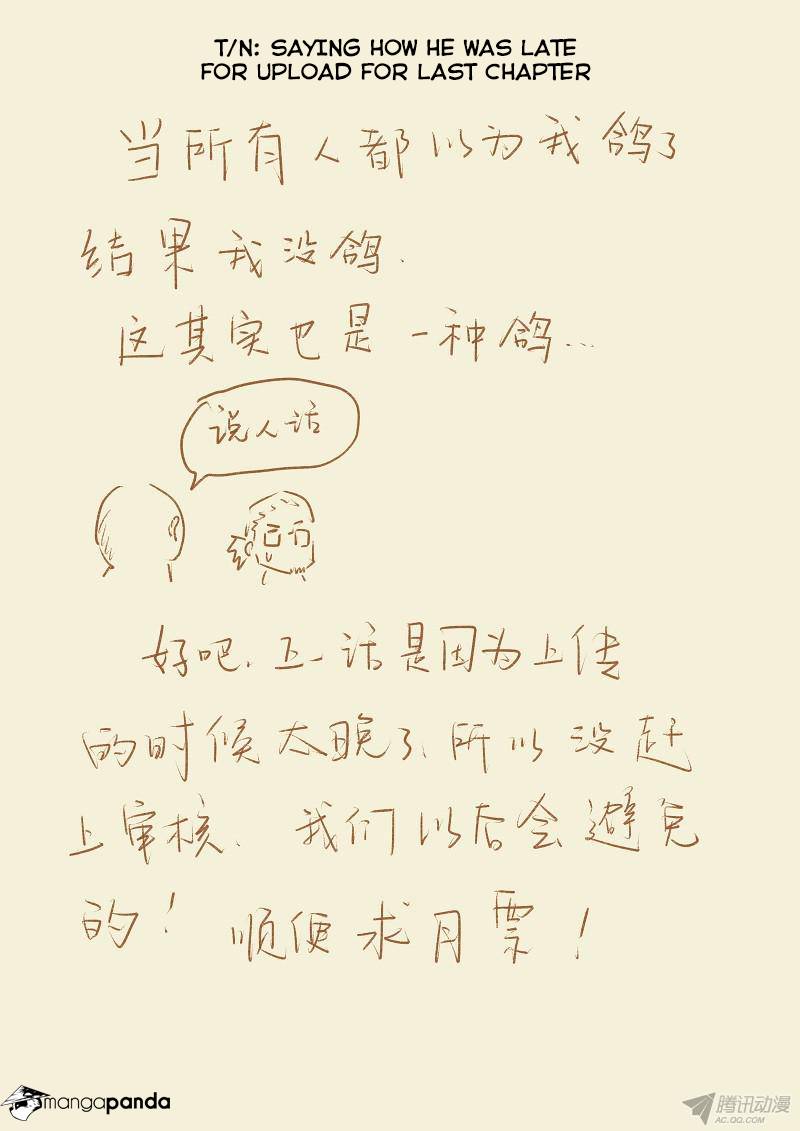 T/N: SAYING HOW HE WAS LATE
FOR UPLOAD FOR LAST CHAPTER
当所有人都以为我鸽了
结果我没鸽.
这其实也是一种鸽...
说人话
好吧、上一话是因为上传
的时候太晚了、所以没赶
上审核、我们以后会避免
的！顺便求月票！
mangapanda
腾讯动漫
AC.QQ.COM